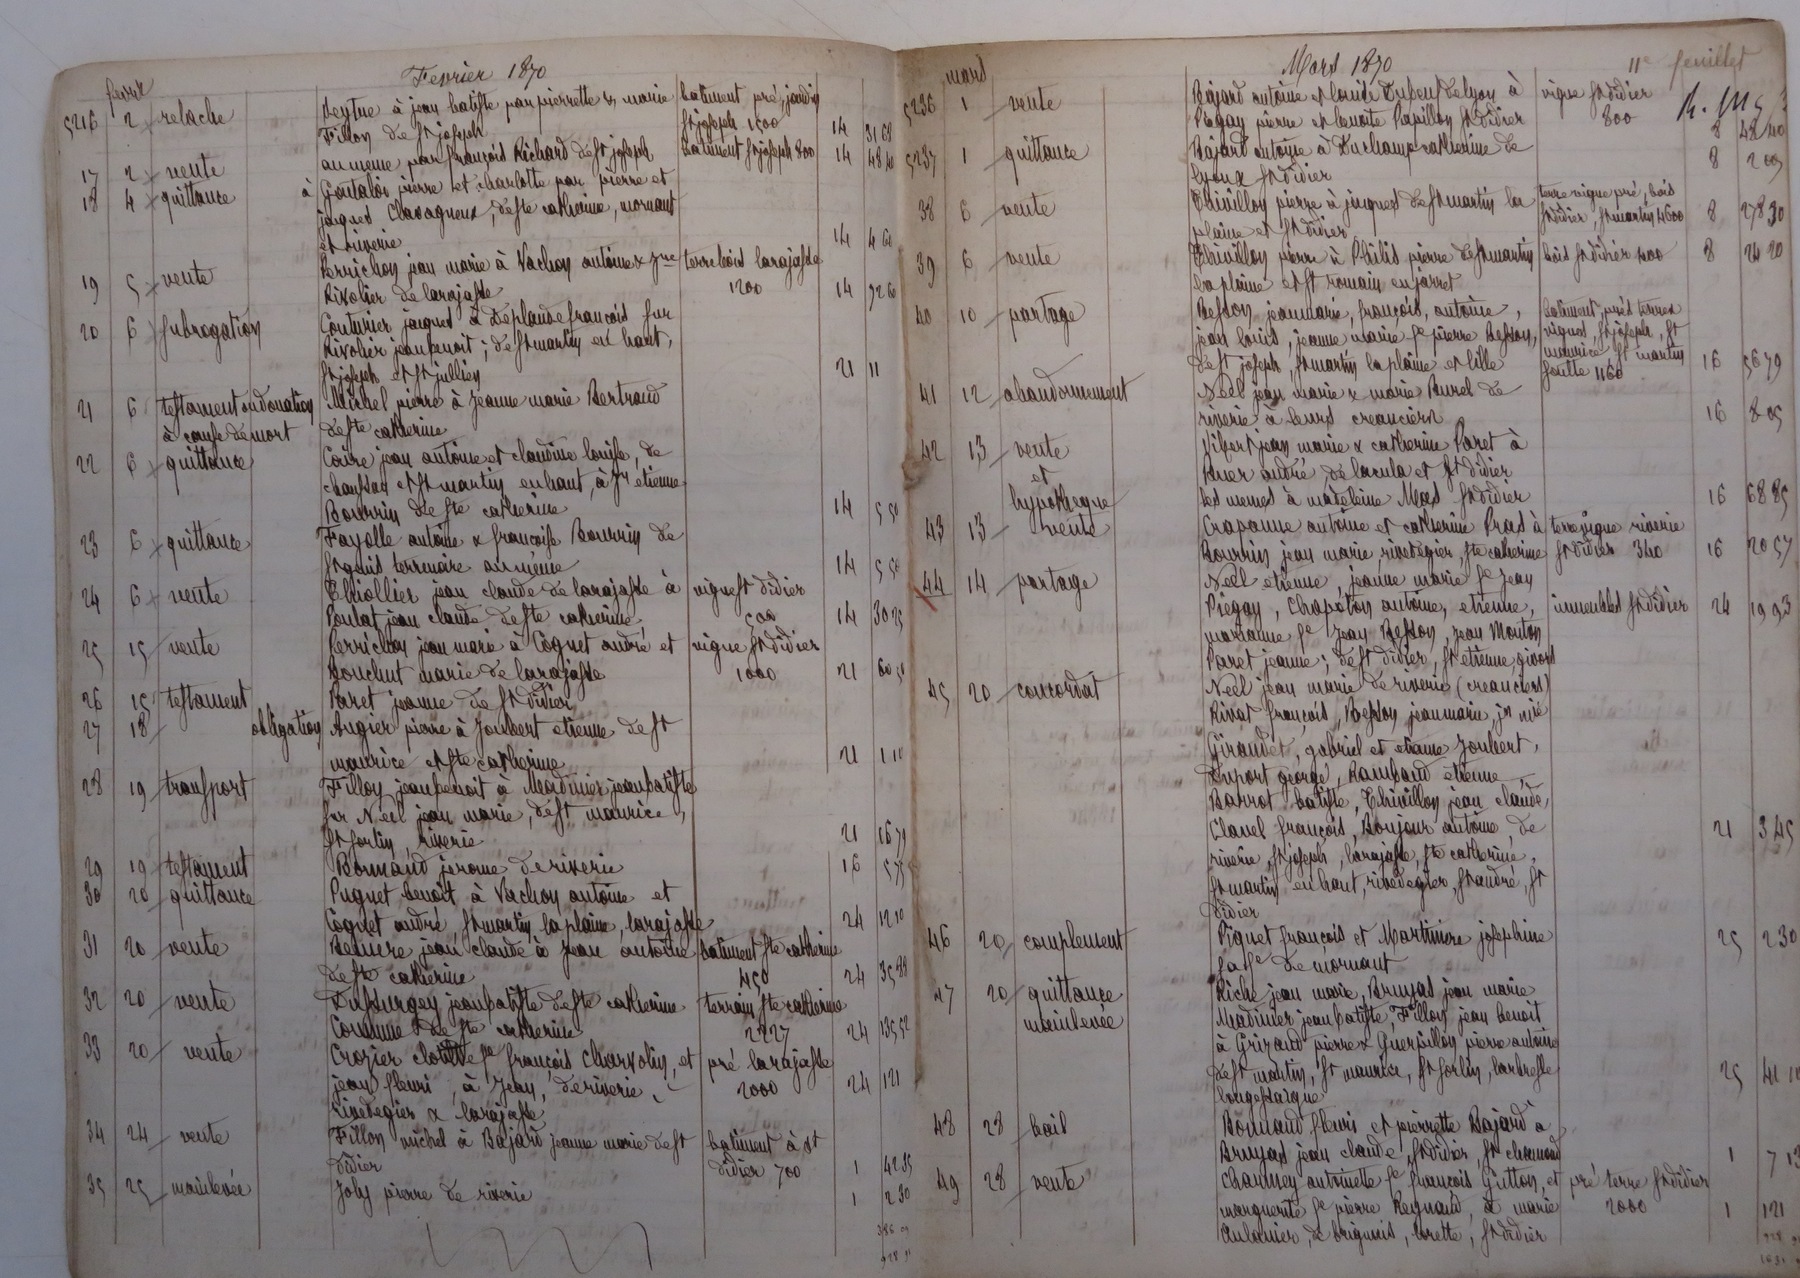 Fevrier 1870
fevrier
5216 2 relache Seytre à jean batiste par pierrette & marie batiment pré, jardin
Fillon de St joseph St joseph 1500 14 31 68
17 2 vente au meme par françois Richard de St joseph batiment St joseph 800 14 48 40
18 4 quittance à Goutalon pierre et charlotte par pierre et
jacques Chavagneux, de ste catherine, mornant
et riverie 14 4 60
19 5 vente Perrichon jean marie à Vachon antoine & terre bois larajasse
Rivolier de larajasse 1200 14 72 60
20 6 subrogation Couturier jacques à Deplaude françois sur
Rivolier jean benoit ; de St martin en haut,
St joseph et St jullien 21 11
21 6 testament ou donation Michel pierre à Jeanne marie Bertraud
à cause de mort de ste catherine
22 6 quittance Coire jean antoine et claudine louise, de
et St martin en haut, à etienne
Bourrin de ste catherine 14 5 50
23 6 quittance Fayolle antoine & françoise Bourrin de
St genis terrenoire au même 14 5 50
24 6 vente Thiollier jean claude de larajasse à vigne St didier
Poulat jean claude de ste catherine 500 14 30 25
25 15 vente Perrichon jean marie à Coquet andré et vigne St didier
Bouchut marie de larajasse 1000 21 60 50
26 15 testament Paret jeanne de St didier
27 18 obligation Augier pierre à Joubert etienne de St
maurice et ste catherine 21 1 10
28 19 transport Fillon jean benoit à Madinier jean batiste
sur Néel jean marie, de St maurice,
St sorlin, riverie 21 16 79
29 19 testament Bonnand jerome de riverie 16 5 75
30 20 quittance Puguet benoit à Vachon antoine et
Coquet andré, St martin la plaine, larajasse 24 12 10
31 20 vente jean claude à Jean antoine batiment ste catherine
de ste catherine 450 24 35 88
32 20 vente Dussurgey jean batiste de ste catherine terrain ste catherine
Commune de ste catherine 2227 24 135 52
33 20 vente Crozier clotilde fe françois Charvolin, et pré larajasse
jean fleuri, à Jean, de riverie, 2000 24 121
rivedegier & larajasse
34 24 vente Fillon michel à Bajard jeanne marie de St batiment à St
didier didier 700 1 42 35
35 25 mainlevée Joly pierre de riverie 1 2 30
Mars 1870 11e feuillet
mars
5236 1 vente Bajard antoine et louise de lyon à vigne St didier
Piegay pierre et benoite Papillon St didier 800 8 48 40
5237 1 quittance Bajard antoine à Duchamp catherine de
lyon & St didier 8 2 05
38 6 vente Thivillon pierre à jacques de St martin la terre vigne pré, bois
plaine et St didier St didier, St martin 4600 8 278 30
39 6 vente Thivillon pierre à Philis pierre de St martin bois St didier 400 8 24 20
la plaine et St romain en jarret
40 10 partage Besson, jean marie, françois, antoine, batiment, prés terres
jean louis, jeanne marie fe pierre Besson, vignes, St joseph, St
de St joseph, St martin la plaine et lille maurice St martin
soulte 1160 16 56 79
41 12 abandonnement Néel jean marie & marie Burel de
riverie à leurs creanciers 16 8 05
42 13 vente Vibert jean marie & catherine Paret à
et andré, de larula et St didier
hypotheque les memes à madeleine Mas St didier 16 68 85
43 13 vente Crapanne antoine et catherine Pras à terre, vigne riverie
Bourrin jean marie, rivedegier, ste catherine St didier 340 16 20 57
44 14 partage Néel etienne, jeanne marie fe Jean
Piegay, Chapoton antoine, etienne, immeubles St didier 24 19 93
marianne fe Jean Besson, Jean Mouton
Paret jeanne ; de St didier, St etienne givors
45 20 concordat Néel jean marie de riverie (creanciers)
Rivat françois, Besson jean marie, jn mie
Giraudet, gabriel et etienne Joubert,
Duport george, Rambaud etienne
Barrot batiste, Thivillon jean claude,
Clavel françois, Boujour antoine, de
riverie, St joseph, larajasse, ste catherine, 21 3 45
St martin en haut, rivedegier, St andré, St
didier
46 20 complement Piguet françois et Martiniere josephine
sa fe de mornant 25 2 30
47 20 quittance Riche jean marie, Bruyas jean marie
mainlevée Madinier jean batiste, Fillon jean benoit
à Grizard pierre & Guerpillon pierre antoine
de St martin, St maurice, St sorlin, larbresle
longessaigne 25 41
48 28 bail Bonnand fleuri et pierrette Bajard à
Bruyas jean claude, St didier, St chamond 1 7 13
49 28 vente Charmey antoinette fe françois Guitton, et pré terre St didier
marguerite fe pierre Reynard, à marie 2000 1 121
Aulanier, de brignais, lorette, St didier